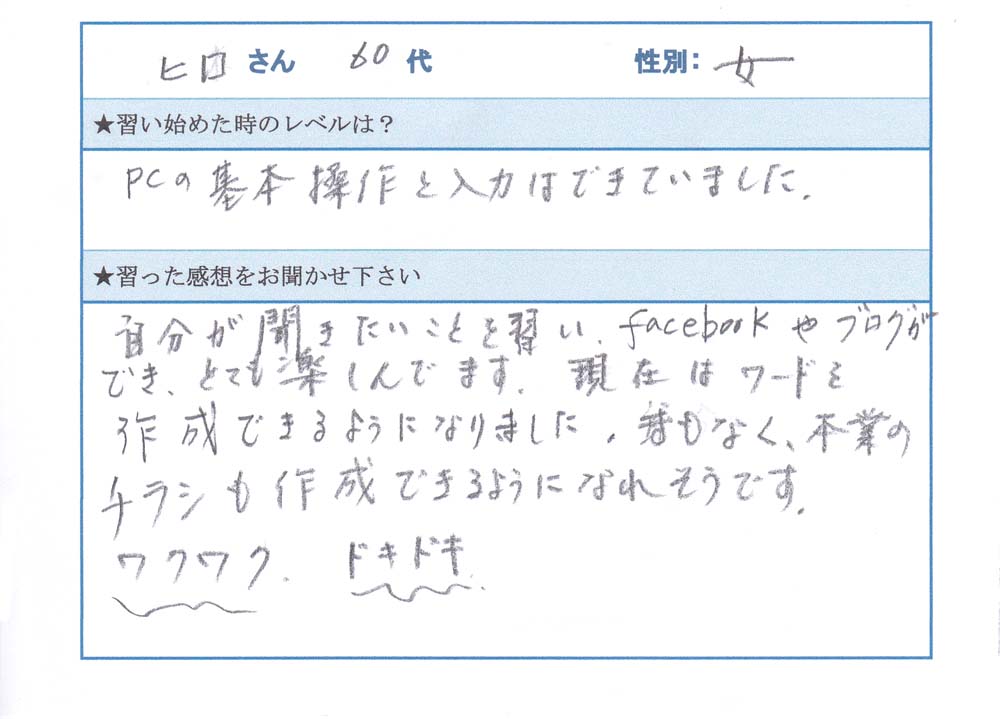 ヒロさん 60代 性別：女
★習い始めた時のレベルは？
PCの基本操作と入力はできていました。
★習った感想をお聞かせ下さい
自分が聞きたいことを習い、facebookやブログが
でき、とても楽しんでます。現在はワードを
作成できるようになりました。もなく、本業の
チラシも作成できるようになれそうです。
ワクワク、ドキドキ